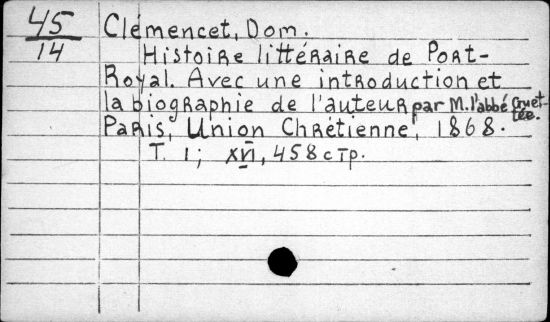 45
14
Clémencet, Dom.
Histoire littéraire de Port-
Royal. Avec une introduction et
la biographie de l'auteur par M. l'abbé Guet-
tée.
Paris, Union Chrétienne, 1868.
T. 1; XVI, 458 стр.